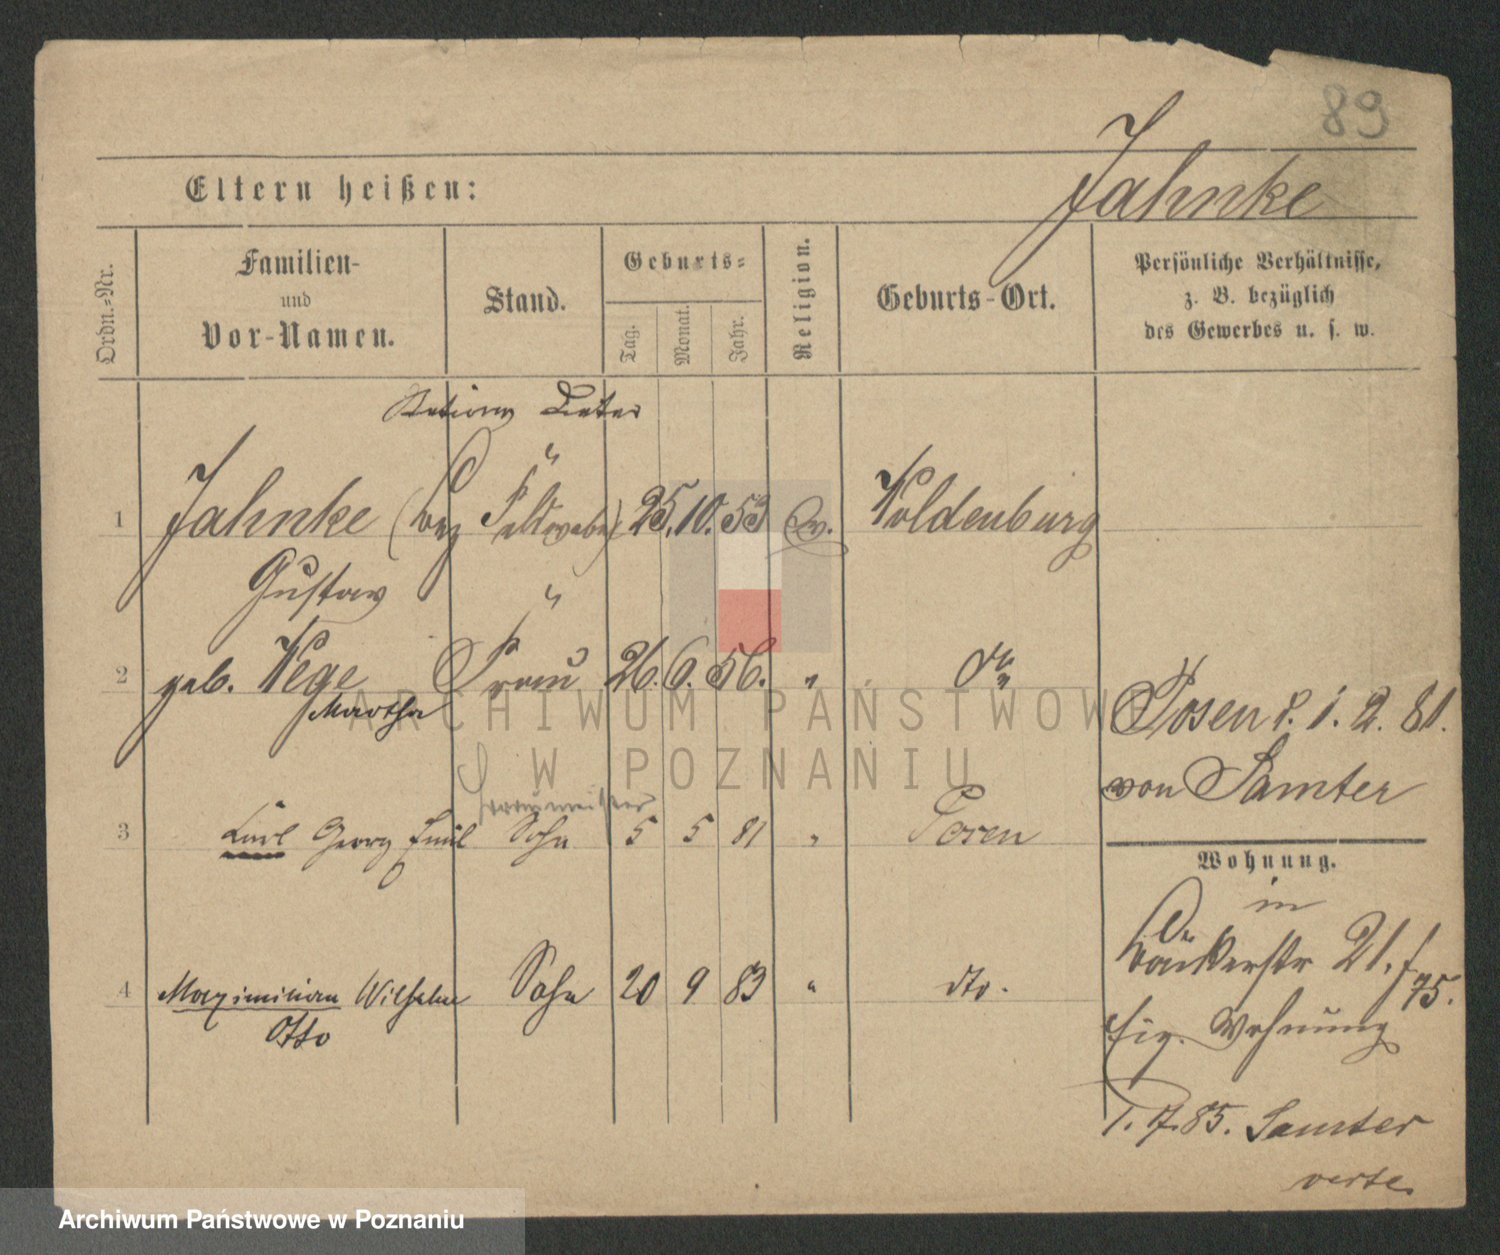 89
Jahnke
Eltern heißen:
Ordn.-Nr.
Familien-
und
Vor-Namen.
Stand.
Geburts-
Tag.
Monat.
Jahr.
Religion.
Geburts-Ort.
Persönliche Verhältnisse,
z. B. bezüglich
des Gewerbes u. s. w.
1 Jahnke (Bez Feldwebel) 25. 10. 53 Ev. Woldenburg
Gustav "
2 geb. Wege Frau 26. 6. 56. " do
Martha
Posen d. 1. 2. 81.
von Samter
3 Karl Georg Emil Sohn 5 5 81 " Posen
Wohnung.
in
Bäckerstr 21. f 75.
4 Maximilian Wilhelm Sohn 20 9 83 " dto.
Otto
Eig. Wohnung
1. 7. 85. Samter
verte.
ARCHIWUM PAŃSTWOWE
W POZNANIU
Archiwum Państwowe w Poznaniu